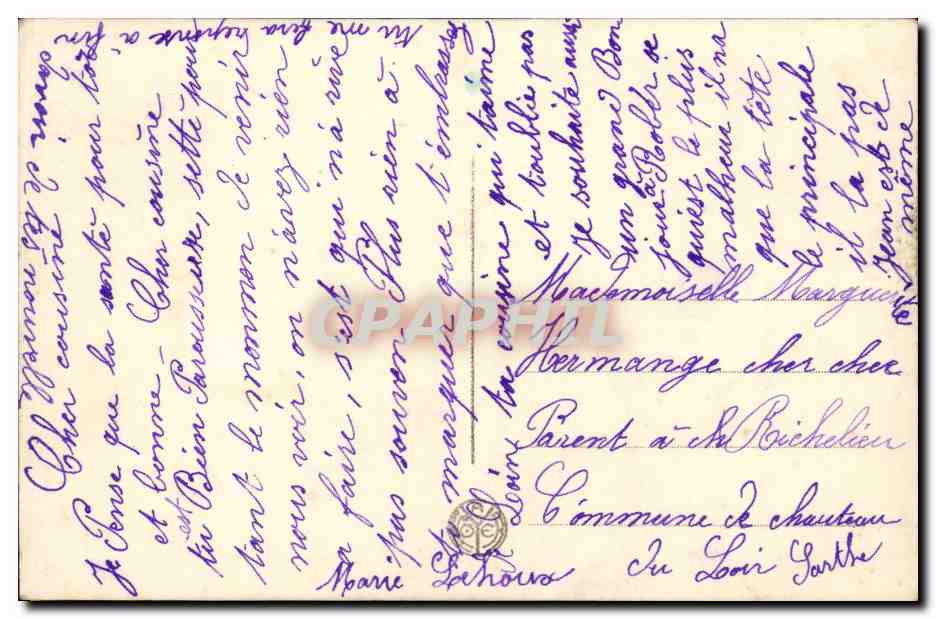 Cher cousine
Je Pense que la santé pour toi
et bonne Cher cousine
tu est Bien Parausseuse, sette pour
tant le mommon de venir
nous voir, on n'avez rien
a faire, s'est qui n'a rêve
pas souven Plus rien à
te marquer que t'embrasse
de Loin ta cousine qui taime
et toublie pas
Je souhaite aussi
un grand Bon
jour à Rober se
quiest le plus
malheur il na
que la tête
le principale
il la pas
jean est de
même
Marie Lehoux
Tu me fera reponse à fin
davoir de tes nouvelle
Mademoiselle Marguerite
Hermange cher cher
Parent à ch Richelieu
Commune de chauteau
du Loir Sarthe
CPAPHIL